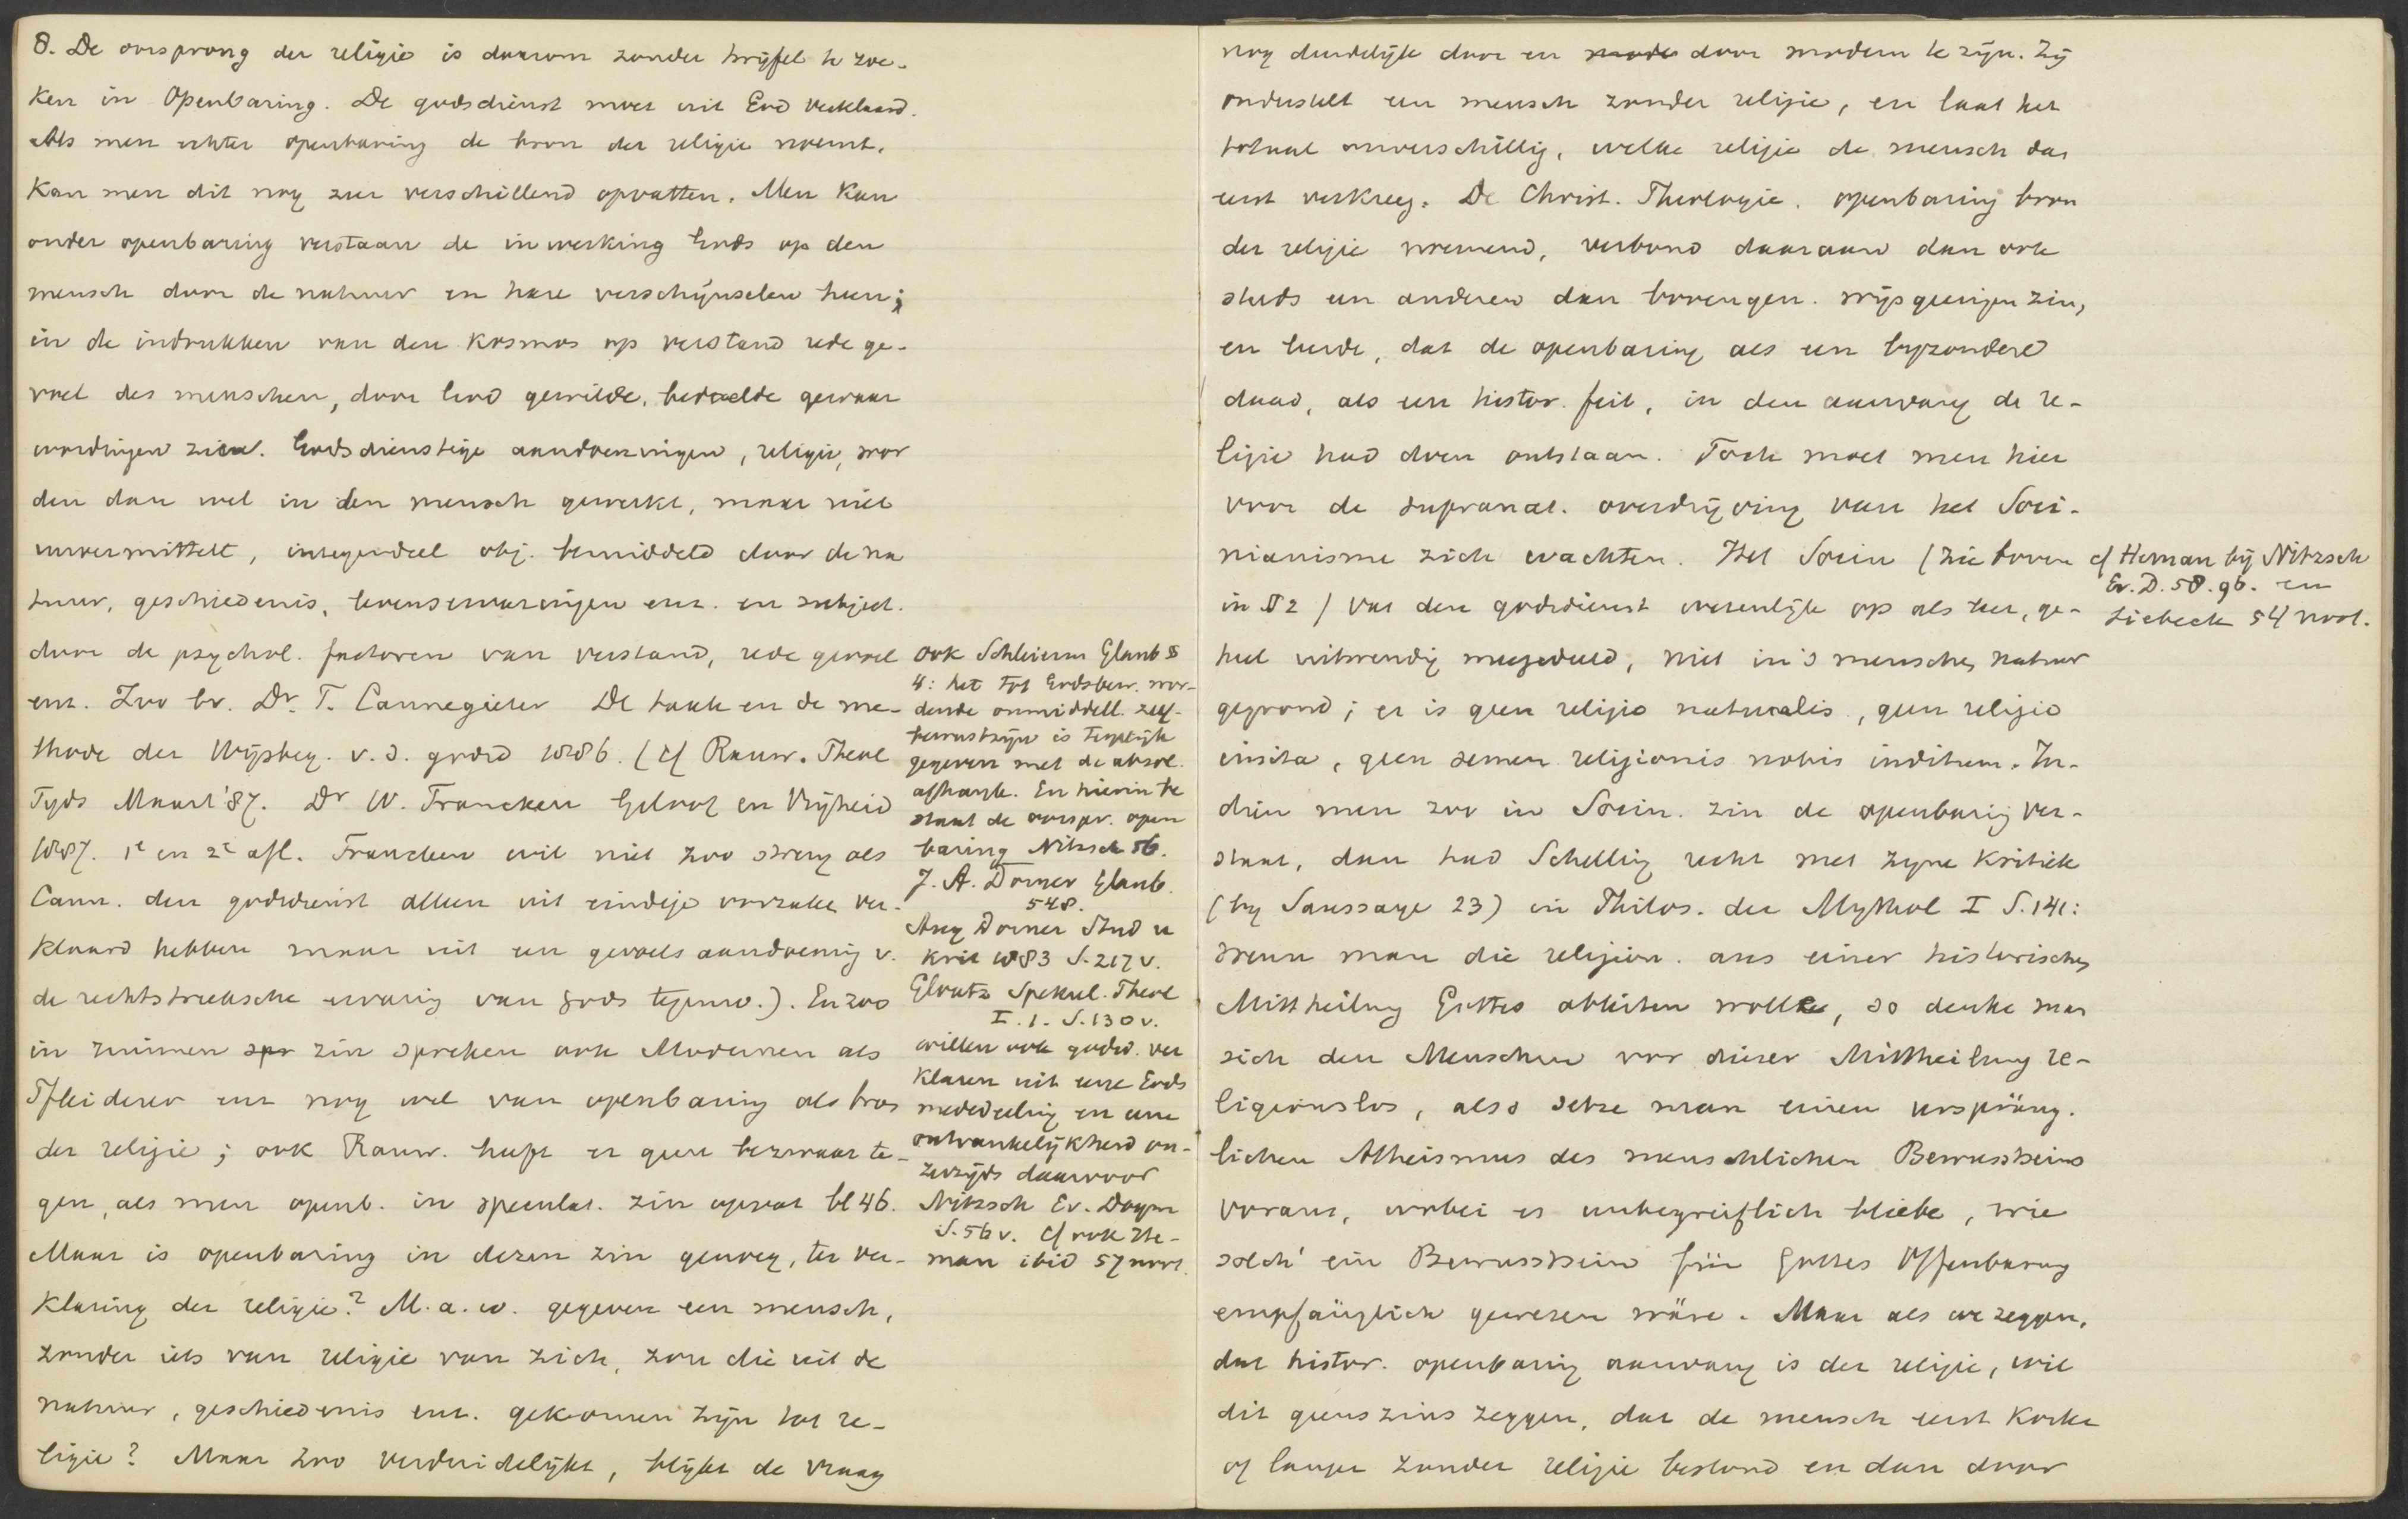 8. De oorsprong der religie is daarom zonder twijfel te zoe-
ken in Openbaring. De godsdienst moet uit God verklaard.
Als men echter openbaring de bron der religie noemt,
kan men dit nog zeer verschillend opvatten. Men kan
onder openbaring verstaan de inwerking Gods op den
mensch door de natuur en hare verschijnselen heen;
in de indrukken van den kosmos op verstand rede ge-
voel des menschen, door God gewilde, bedoelde gewaar
wordingen zien. Godsdienstige aandoeningen, religie, wor
den dan wel in den mensch gewerkt, maar niet
unvermittelt, integendeel obj. bemiddeld door de na
tuur, geschiedenis, levenservaringen enz. en subject.
door de psychol. factoren van verstand, rede gevoel
enz. Zoo bv. Dr. T. Cannegieter De taak en de me-
thode der Wijsbeg. v. d. godsd 1886. (cf Rauw. Theol
Tyds Maart '87. Dr W. Francken Geloof en Vrijheid
1887. 1e en 2e afl. Francken wil niet zoo streng als
Cann. den godsdienst alleen uit eindige oorzaken ver-
klaard hebben maar uit een gevoelsaandoening v.
de rechtstreeksche ervaring van Gods tegenw.). En zoo
in ruimen spr zin spreken ook Modernen als
Pfleiderer enz nog wel van openbaring als bron
der religie; ook Rauw. heeft er geen bezwaar te-
gen, als men openb. in speculat. zin opvat bl 46.
Maar is openbaring in dezen zin genoeg, ter ver-
klaring der religie? M. a. w. gegeven een mensch,
zonder iets van religie van zich, zou die uit de
natuur, geschiedenis enz. gekomen zijn tot re-
ligie? Maar zoo verduidelijkt, blijkt de vraag
ook Schleierm Glaub §
4: het tot Godsbew. wor-
dende onmiddell. zelf-
bewustzijn is tegelijk
gegeven met de absol.
afhank. En hierin be
staat de oorspr. open
baring Nitzsch 56.
J. A. Dorner Glaub.
548.
Aug Dorner Stud u
Krit 1883 S. 217 v.
Glvatz Spekul. Theol
I. 1. S. 130 v.
willen ook godsd. ver
klaren uit eene Gods
mededeeling en eene
ontvankelijkheid on-
zerzijds daarvoor
Nitzsch Ev. Dogm
S. 56 v. cf ook He-
man ibid 57 noot.
nog duidelijk door en mode door modern te zijn. Zij
onderstelt een mensch zonder religie, en laat het
totaal onverschillig, welke religie de mensch dan
eerst verkreeg. De Christ. Theologie. openbaring bron
der religie noemend, verbond daaraan dan ook
steeds een anderen dan bovengen. wijsgeerigen zin,
en leerde, dat de openbaring als een byzondere
daad, als een histor. feit, in den aanvang de re-
ligie had doen ontstaan. Toch moet men hier
voor de supranat. overdrijving van het Soci-
nianisme zich wachten. Het Socin (zie boven
in § 2) vat den godsdienst wezenlijk op als leer, ge-
heel uitwendig meegedeeld, niet in 's menschen natuur
gegrond; er is geen religio naturalis, geen religio
insita, geen semen religionis nobis inditum. In-
dien men zoo in Socin. zin de openbaring ver-
staat, dan had Schelling recht met zijne kritiek
(by Saussaye 23) in Philos. der Mythol I S. 141:
wenn man die religion aus einer historischen
Mittheilung Gottes ableiten wollte, so denke man
sich den Menschen vor dieser Mittheilung re-
ligionslos, also setze man einen ursprüng.
lichen Atheismus des menschlichen Bewusstseins
voraus, wobei es unbegreiflich bliebe, wie
solch' ein Bewusstsein für Gottes Offenbarung
empfänglich gewesen wäre. Maar als we zeggen,
dat histor. openbaring aanvang is der religie, wil
dit geenszins zeggen, dat de mensch eerst korter
of langer zonder religie bestond en dan door
cf Heman bij Nitzsch
Ev. D. 58. 96. en
Liebeck 54 noot.